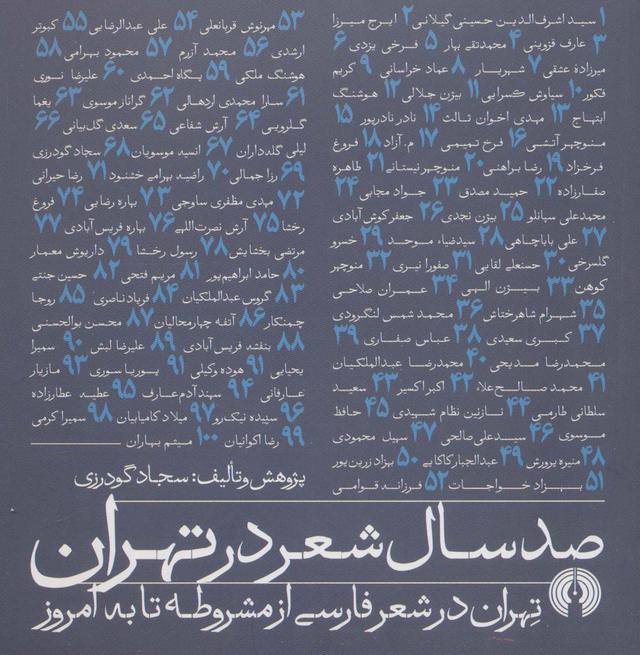 ۱ سید اشرف‌الدین حسینی گیلانی ۲ ایرج میرزا
۳ عارف قزوینی ۴ محمدتقی بهار ۵ فرخی یزدی ۶
میرزاده عشقی ۷ شهریار ۸ عماد خراسانی ۹ کریم
فکور ۱۰ سیاوش کسرایی ۱۱ بیژن جلالی ۱۲ هوشنگ
ابتهاج ۱۳ مهدی اخوان ثالث ۱۴ نادر نادرپور ۱۵
منوچهر آتشی ۱۶ فرخ تمیمی ۱۷ م. آزاد ۱۸ فروغ
فرخزاد ۱۹ رضا براهنی ۲۰ منوچهر نیستانی ۲۱ طاهره
صفارزاده ۲۲ حمید مصدق ۲۳ جواد مجابی ۲۴
محمدعلی سپانلو ۲۵ بیژن نجدی ۲۶ جعفر کوش‌آبادی
۲۷ علی باباچاهی ۲۸ سیدضیاء موحد ۲۹ خسرو
گلسرخی ۳۰ حسنعلی لقایی ۳۱ صفورا نیری ۳۲ منوچهر
کوهن ۳۳ بیژن الهی ۳۴ عمران صلاحی
۳۵ شهرام شاهرختاش ۳۶ محمد شمس لنگرودی
۳۷ کبری سعیدی ۳۸ عباس صفاری ۳۹
محمدرضا مدیحی ۴۰ محمدرضا عبدالملکیان
۴۱ محمد صالح‌علاء ۴۲ اکبر اکسیر ۴۳ سعید
سلطانی طارمی ۴۴ نازنین نظام شهیدی ۴۵ حافظ
موسوی ۴۶ سیدعلی صالحی ۴۷ سهیل محمودی
۴۸ منیره پرورش ۴۹ عبدالجبار کاکایی ۵۰ بهزاد زرین‌پور
۵۱ بهزاد خواجات ۵۲ فرزانه قوامی
۵۳ مهرنوش قربانعلی ۵۴ علی عبدالرضایی ۵۵ کبوتر
ارشدی ۵۶ محمد آزرم ۵۷ محمود بهرامی ۵۸
هوشنگ ملکی ۵۹ پگاه احمدی ۶۰ علیرضا نوری
۶۱ سارا محمدی اردهالی ۶۲ گراناز موسوی ۶۳ یغما
گلرویی ۶۴ آرش شفاعی ۶۵ سعدی گل‌بیانی ۶۶
لیلی گله‌داران ۶۷ انسیه موسویان ۶۸ سجاد گودرزی
۶۹ رزا جمالی ۷۰ راضیه بهرامی خشنود ۷۱ رضا حیرانی
۷۲ مهدی مظفری ساوجی ۷۳ بهاره رضایی ۷۴ فروغ
رخشا ۷۵ آرش نصرت‌اللهی ۷۶ بهاره فریس‌آبادی ۷۷
مرتضی بخشایش ۷۸ رسول رخشا ۷۹ داریوش معمار
۸۰ حامد ابراهیم‌پور ۸۱ مریم فتحی ۸۲ حسین جنتی
۸۳ گروس عبدالملکیان ۸۴ فریاد ناصری ۸۵ روجا
چمنکار ۸۶ آتفه چهارمحالیان ۸۷ محسن بوالحسنی
۸۸ بنفشه فریس‌آبادی ۸۹ علیرضا لبش ۹۰ سمیرا
یحیایی ۹۱ هوده وکیلی ۹۱ پوریا سوری ۹۳ مازیار
عارفانی ۹۴ سپند آدم‌عارف ۹۵ عطیه عطارزاده
۹۶ سپیده نیک‌رو ۹۷ میلاد کامیابیان ۹۸ سمیرا کرمی
۹۹ رضا اکوانیان ۱۰۰ میثم بهاران
پژوهش و تألیف: سجاد گودرزی
صد سال شعر در تهران
تهران در شعر فارسی از مشروطه تا به امروز